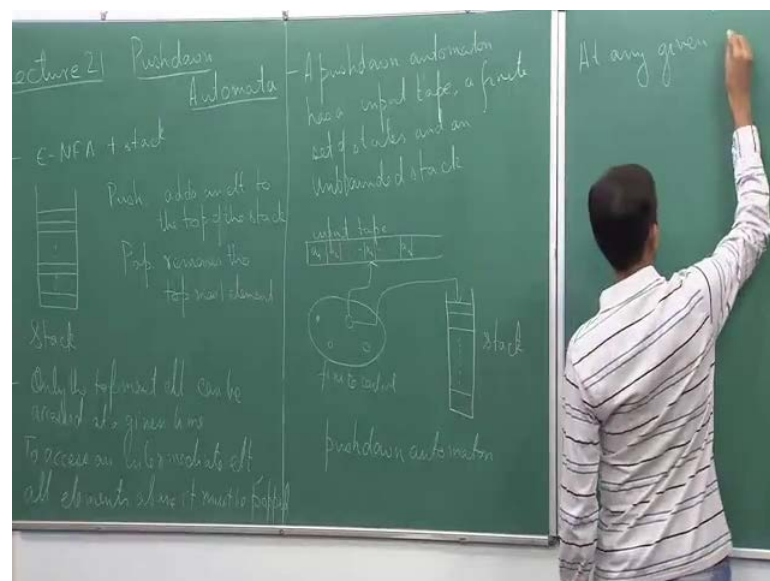 Lecture 21 Pushdown
Automata
- ε-NFA + stack
Push: adds an elt to
the top of the stack
Pop: removes the
top most element
Stack
- Only the topmost elt can be
accessed at a given time
To access an intermediate elt
all elements above it must be popped
- A pushdown automaton
has a input tape, a finite
set of states and an
unbounded stack
input tape
stack
finite control
pushdown automaton
At any given